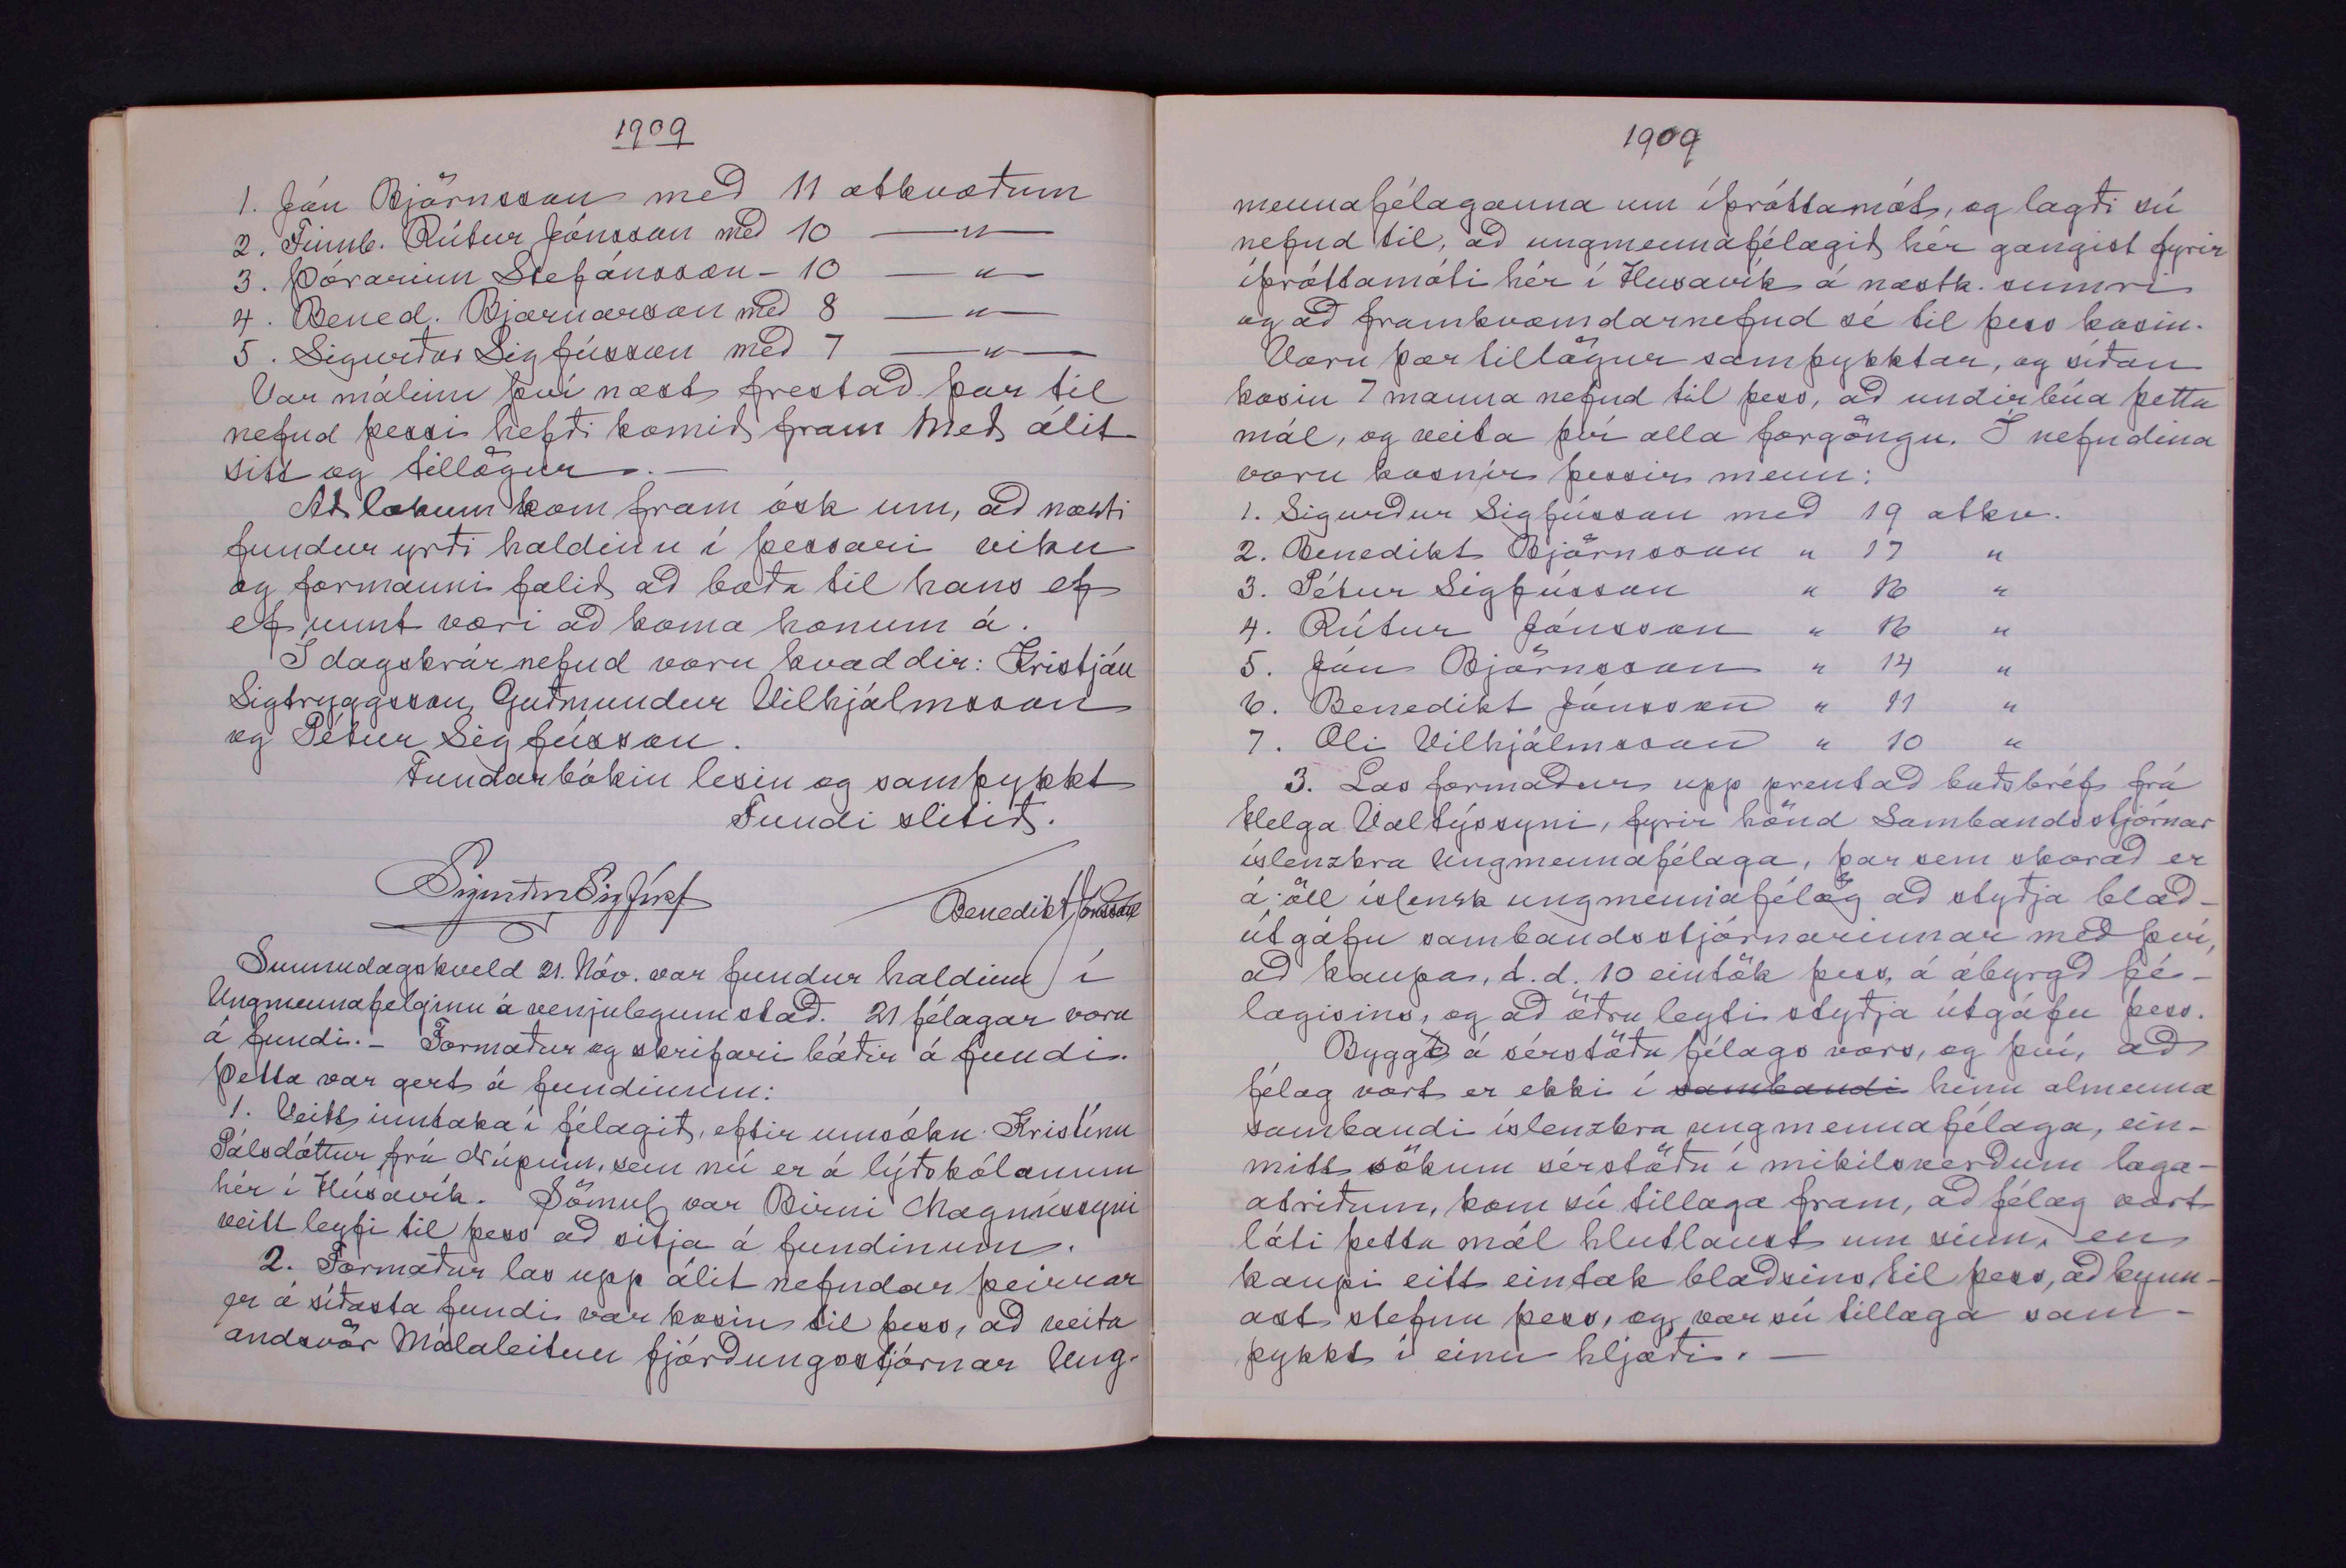 1909
1. Jón Björnsson með 11 atkvæðum
2. Finnb. Rútur Jónsson með 10 —"—
3. Þórarinn Stefánsson - 10 —"—
4. Bened. Bjarnarson með 8 —"—
5. Sigurður Sigfússon með 7 —"—
Var málinu því næst frestað þar til
nefnd þessi hefði komið fram með álit
sitt og tillögur. —
Að lokum kom fram ósk um, að næsti
fundur yrði haldinn í þessari viku
og formanni falið að boða til hans ef
ef unnt væri að koma honum á.
Í dagskrárnefnd voru kvaddir: Kristján
Sigtryggsson, Guðmundur Vilhjálmsson
og Pétur Sigfússon.
Fundarbókin lesin og samþykkt
Fundi slitið.
Sigurður Sigfúss Benedikt Jónsson
Sunnudagskveld 21. Nóv. var fundur haldinn í
Ungmennafélginu á venjulegum stað. 21 félagar voru
á fundi. - Formaður og skrifari báðir á fundi.
Þetta var gert á fundinum:
1. Veitt inntaka í félagið, eftir umsókn Kristínu
Pálsdóttur frá Núpum, sem nú er á lýðskólanum
hér í Húsavík. Sömul. var Birni Magnússyni
veitt leyfi til þess að sitja á fundinum.
2. Formaður las upp álit nefndar þeirrar
er á síðasta fundi var kosin til þess, að veita
andsvör málaleitun fjórðungsstjórnar Ung-
1909
mennafélaganna um íþróttamót, og lagði sú
nefnd til, að ungmennafélagið hér gangist fyrir
íþróttamóti hér í Húsavík á næstk. sumri
og að framkvæmdarnefnd sé til þess kosin.
Voru þær tillögur samþykktar, og síðan
kosin 7 manna nefnd til þess, að undirbúa þetta
mál, og veita því alla forgöngu. Í nefndina
voru kosnir þessir menn:
1. Sigurður Sigfússon með 19 atkv.
2. Benedikt Björnsson " 17 "
3. Pétur Sigfússon " 16 "
4. Rútur Jónsson " 16 "
5. Jón Björnsson " 14 "
6. Benedikt Jónsson " 11 "
7. Óli Vilhjálmsson " 10 "
3. Las formaður upp prentað boðsbréf frá
Helga Valtýssyni, fyrir hönd Sambandsstjórnar
íslenzkra Ungmennafélaga, þar sem skorað er
á öll íslensk ungmennafélög að styðja blað-
útgáfu sambandsstjórnarinnar með því,
að kaupa, t.d. 10 eintök þess, á ábyrgð fé-
lagisins, og að öðru leyti styðja útgáfu þess.
Byggt á sérstöðu félags vors, og því, að
félag vort er ekki í sambandi hinu almenna
sambandi íslenzkra ungmennafélaga, ein-
mitt sökum sérstöðu í mikilsverðum laga-
atriðum, kom sú tillaga fram, að félag vort
láti þetta mál hlutlaust um sinn, en
kaupi eitt eintak blaðsins til þess, að kynn-
ast stefnu þess, og var sú tillaga sam-
þykkt í einu hljóði. —